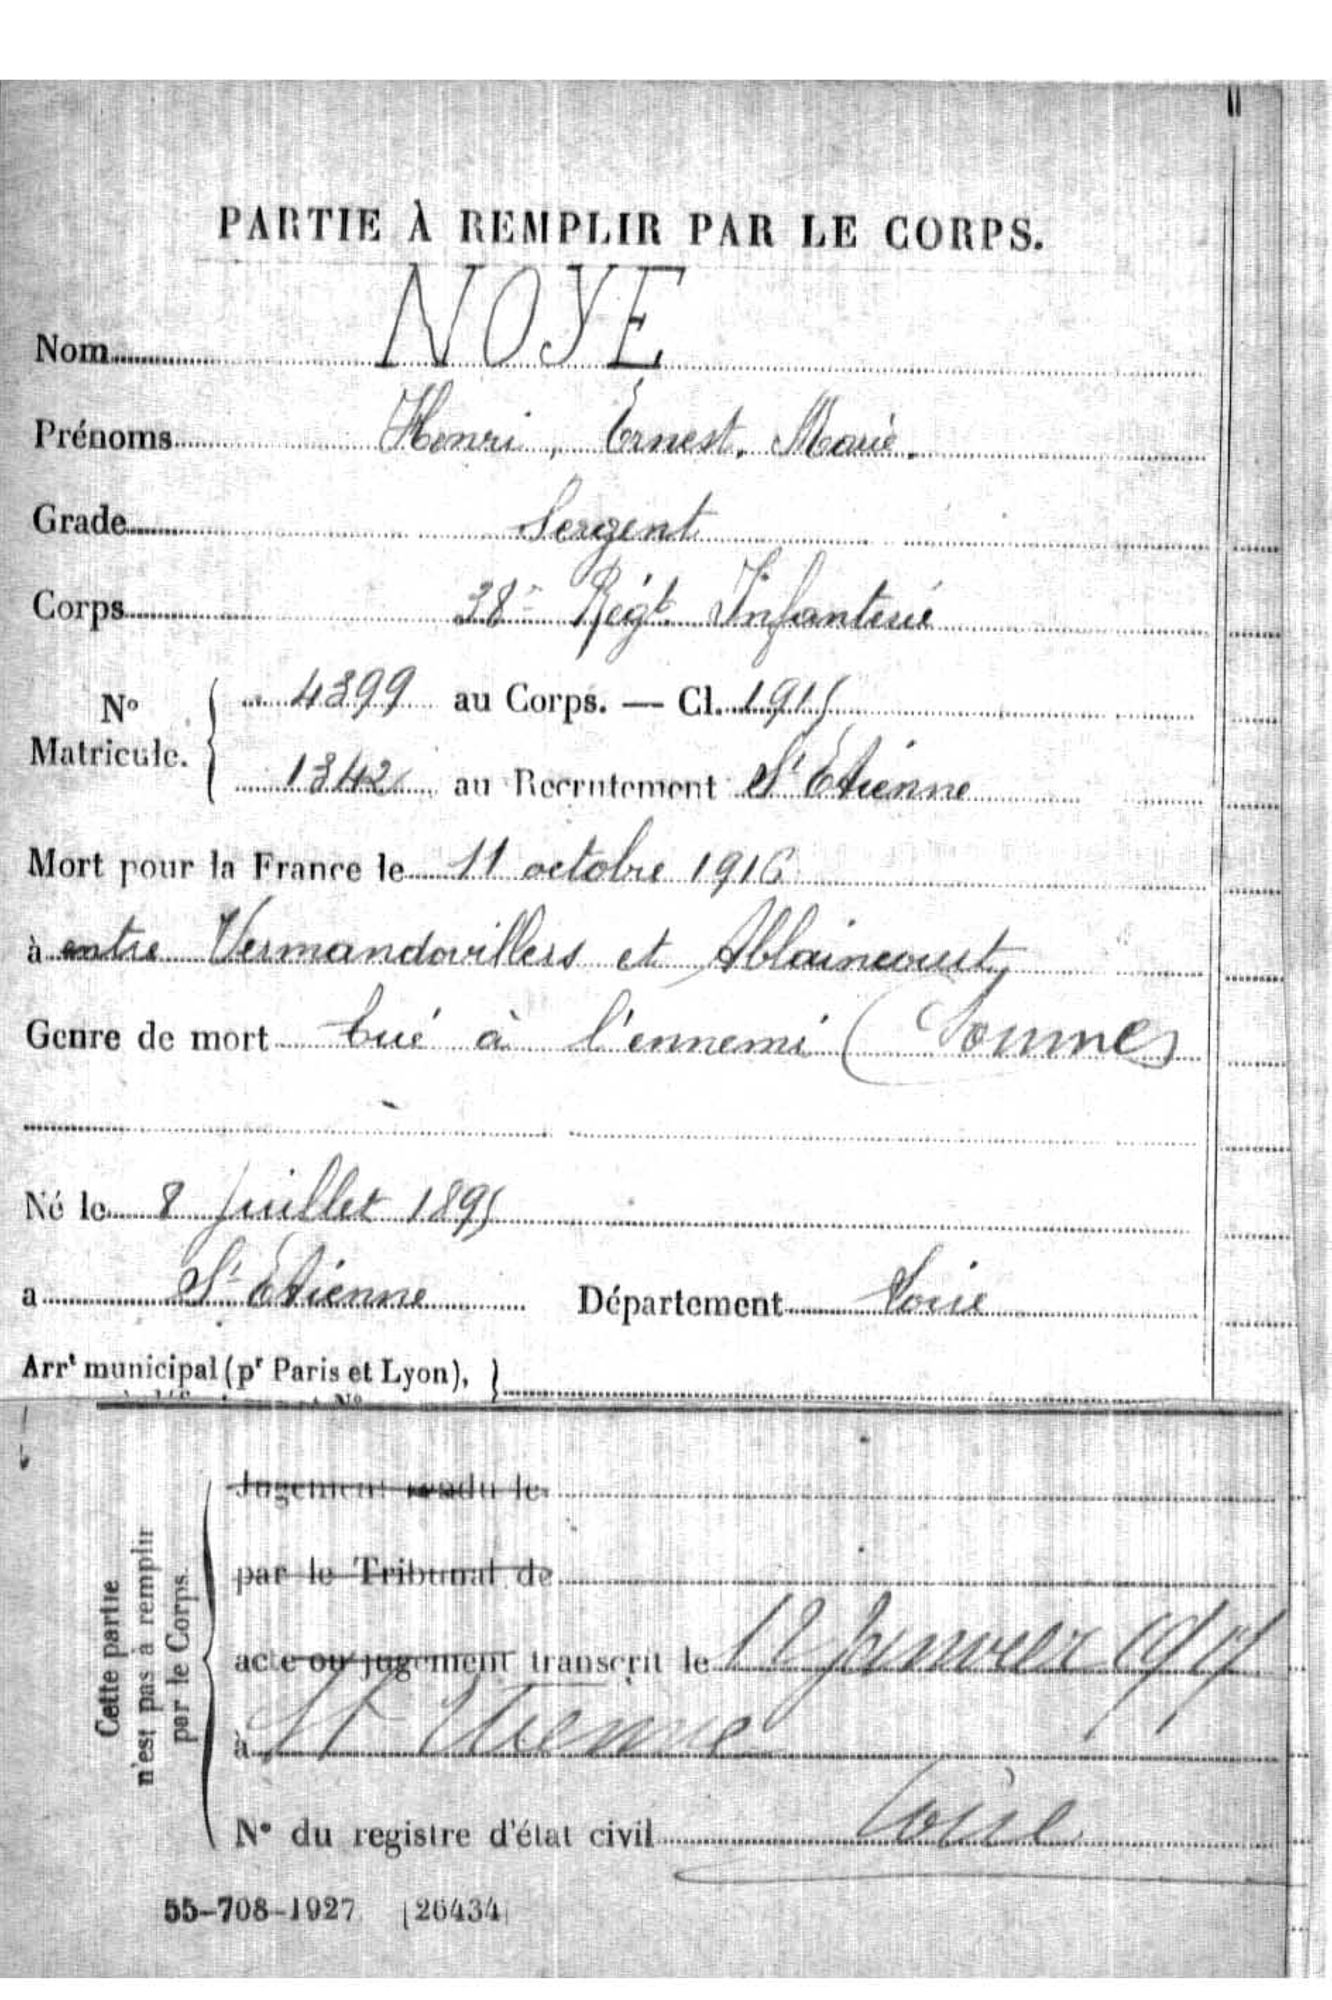 PARTIE À REMPLIR PAR LE CORPS.
Nom NOYE
Prénoms Henri, Ernest, Marie.
Grade Sergent
Corps 38e Régt Infanterie
N° Matricule. 4399 au Corps. — Cl. 1915
1342 au Recrutement St Étienne
Mort pour la France le 11 octobre 1916
à entre Vermandovillers et Ablaincourt
Genre de mort tué à l'ennemi (Somme)
Né le 8 Juillet 1895
a St Étienne Département Loire
Arrt municipal (pr Paris et Lyon),
Cette partie n'est pas à remplir par le Corps.
Jugement rendu le
par le Tribunal de
acte ou jugement transcrit le 12 Janvier 1917
à St Etienne
Loire
N° du registre d'état civil
55-708-1927 [26434]